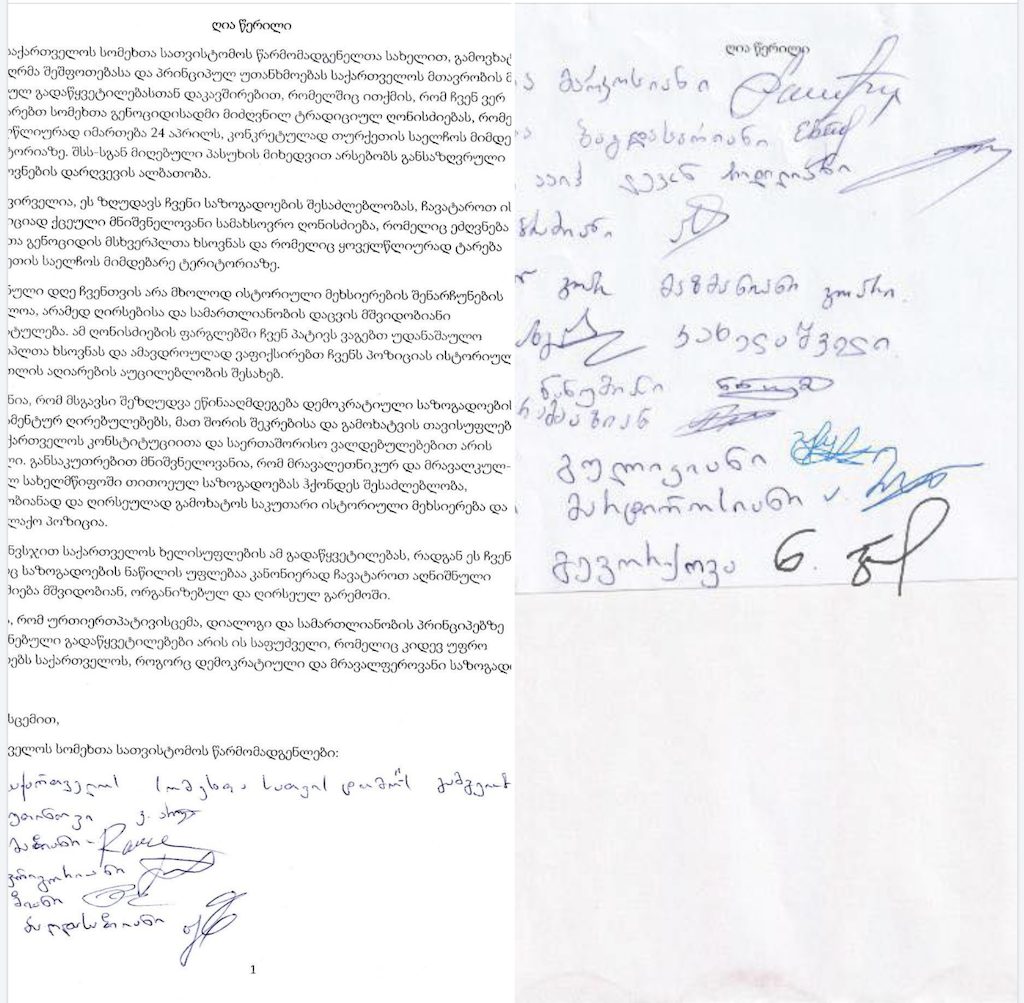 ღია წერილი
საქართველოს სომეხთა სათვისტომოს წარმომადგენელთა სახელით, გამოვხატ
ღრმა შეშფოთებასა და პრინციპულ უთანხმოებას საქართველოს მთავრობის მ
ულ გადაწყვეტილებასთან დაკავშირებით, რომელშიც ითქმის, რომ ჩვენ ვერ
არებთ სომეხთა გენოციდისადმი მიძღვნილ ტრადიციულ ღონისძიებას, რომე
წლიურად იმართება 24 აპრილს, კონკრეტულად თურქეთის საელჩოს მიმდე
ტორიაზე. შსს-სგან მიღებული პასუხის მიხედვით არსებობს განსაზღვრული
ოვნების დარღვევის ალბათობა.
ვირველია, ეს ზღუდავს ჩვენი საზოგადოების შესაძლებლობას, ჩავატაროთ ის
იციად ქცეული მნიშვნელოვანი სამახსოვრო ღონისძიება, რომელიც ეძღვნება
თა გენოციდის მსხვერპლთა ხსოვნას და რომელიც ყოველწლიურად ტარება
ეთის საელჩოს მიმდებარე ტერიტორიაზე.
ნული დღე ჩვენთვის არა მხოლოდ ისტორიული მეხსიერების შენარჩუნების
ლოა, არამედ ღირსებისა და სამართლიანობის დაცვის მშვიდობიანი
ტულება. ამ ღონისძიების ფარგლებში ჩვენ პატივს ვაგებთ უდანაშაულო
პლთა ხსოვნას და ამავდროულად ვაფიქსირებთ ჩვენს პოზიციას ისტორიულ
თლის აღიარების აუცილებლობის შესახებ.
ნია, რომ მსგავსი შეზღუდვა ეწინააღმდეგება დემოკრატიული საზოგადოების
მენტურ ღირებულებებს, მათ შორის შეკრებისა და გამოხატვის თავისუფლებ
ქართველოს კონსტიტუციითა და საერთაშორისო ვალდებულებებით არის
ლი. განსაკუთრებით მნიშვნელოვანია, რომ მრავალეთნიკურ და მრავალკულ-
ლ სახელმწიფოში თითოეულ საზოგადოებას ჰქონდეს შესაძლებლობა,
ობიანად და ღირსეულად გამოხატოს საკუთარი ისტორიული მეხსიერება და
ლაქო პოზიცია.
ნვსჯით საქართველოს ხელისუფლების ამ გადაწყვეტილებას, რადგან ეს ჩვენ
ც საზოგადოების ნაწილის უფლებაა კანონიერად ჩავატაროთ აღნიშნული
ძიება მშვიდობიან, ორგანიზებულ და ღირსეულ გარემოში.
, რომ ურთიერთპატივისცემა, დიალოგი და სამართლიანობის პრინციპებზე
ნებული გადაწყვეტილებები არის ის საფუძველი, რომელიც კიდევ უფრო
ებს საქართველოს, როგორც დემოკრატიული და მრავალფეროვანი საზოგადო
სცემით,
ველოს სომეხთა სათვისტომოს წარმომადგენლები:
აქართველოს სომეხთა სათვისტომოს
გრიგორიანი
ბაღდასარიანი
1
ღია წერილი
მარკოსიანი
ბაგდასარიანი
მაზმანიანი გოარი.
კახელაშვილი
ნანუმიანი
გულიკიანი
მარდიროსიანი
გევორქოვა